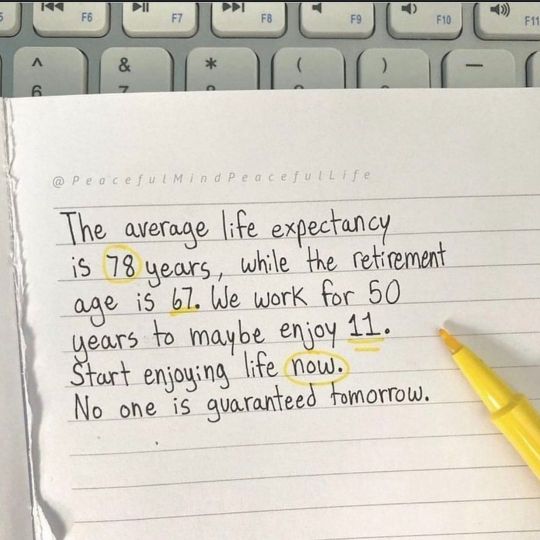 F6
F7
F8
F9
F10
F11
^
&
*
(
)
—
6
7
@PeacefulMindPeacefulLife
The average life expectancy
is 78 years, while the retirement
age is 67. We work for 50
years to maybe enjoy 11.
Start enjoying life now.
No one is guaranteed tomorrow.